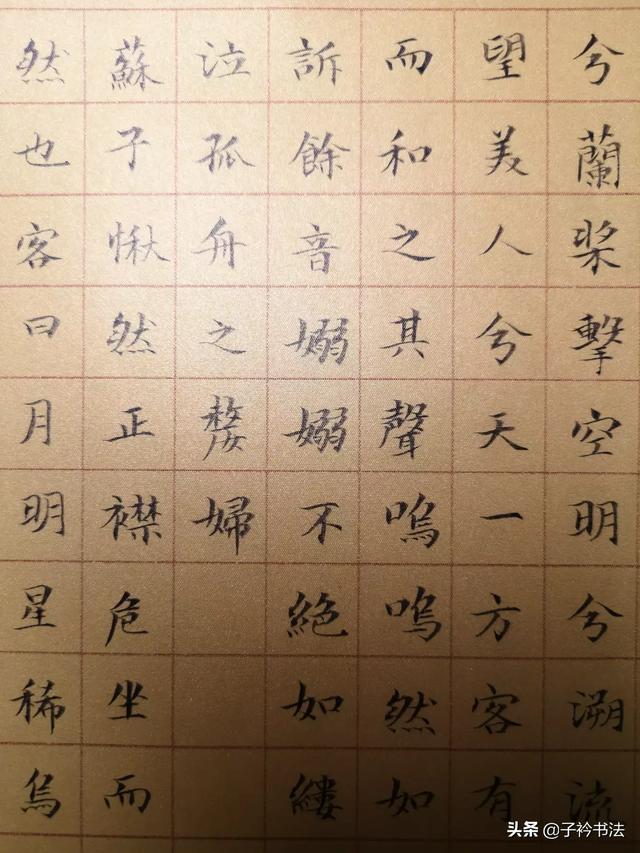 兮蘭槳擊空明兮溯流
望美人兮天一方客有
而和之其聲嗚嗚然如
訴餘音嫋嫋不絕如縷
泣孤舟之嫠婦
蘇子愀然正襟危坐而
然也客曰月明星稀烏
头条 @子衿书法